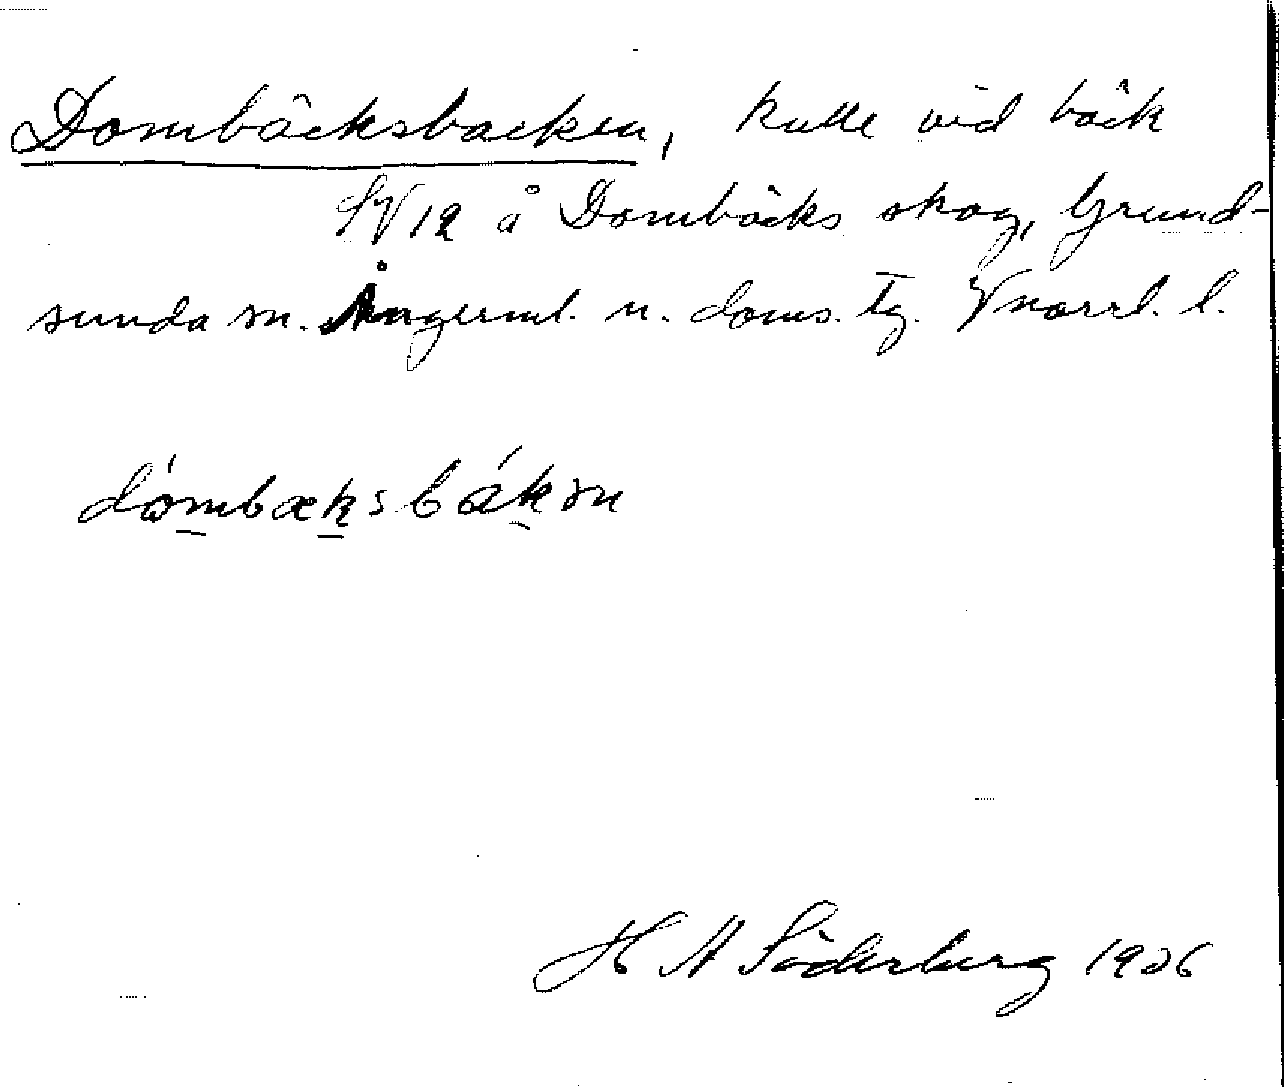 Dombäcksbacken, kulle vid bäck
SV 12 å Dombäcks skog, Grund-
sunda sn. Ångerml. n. doms. tg. Vnorrl. l.
dómbæksbákən
H A Söderberg 1926